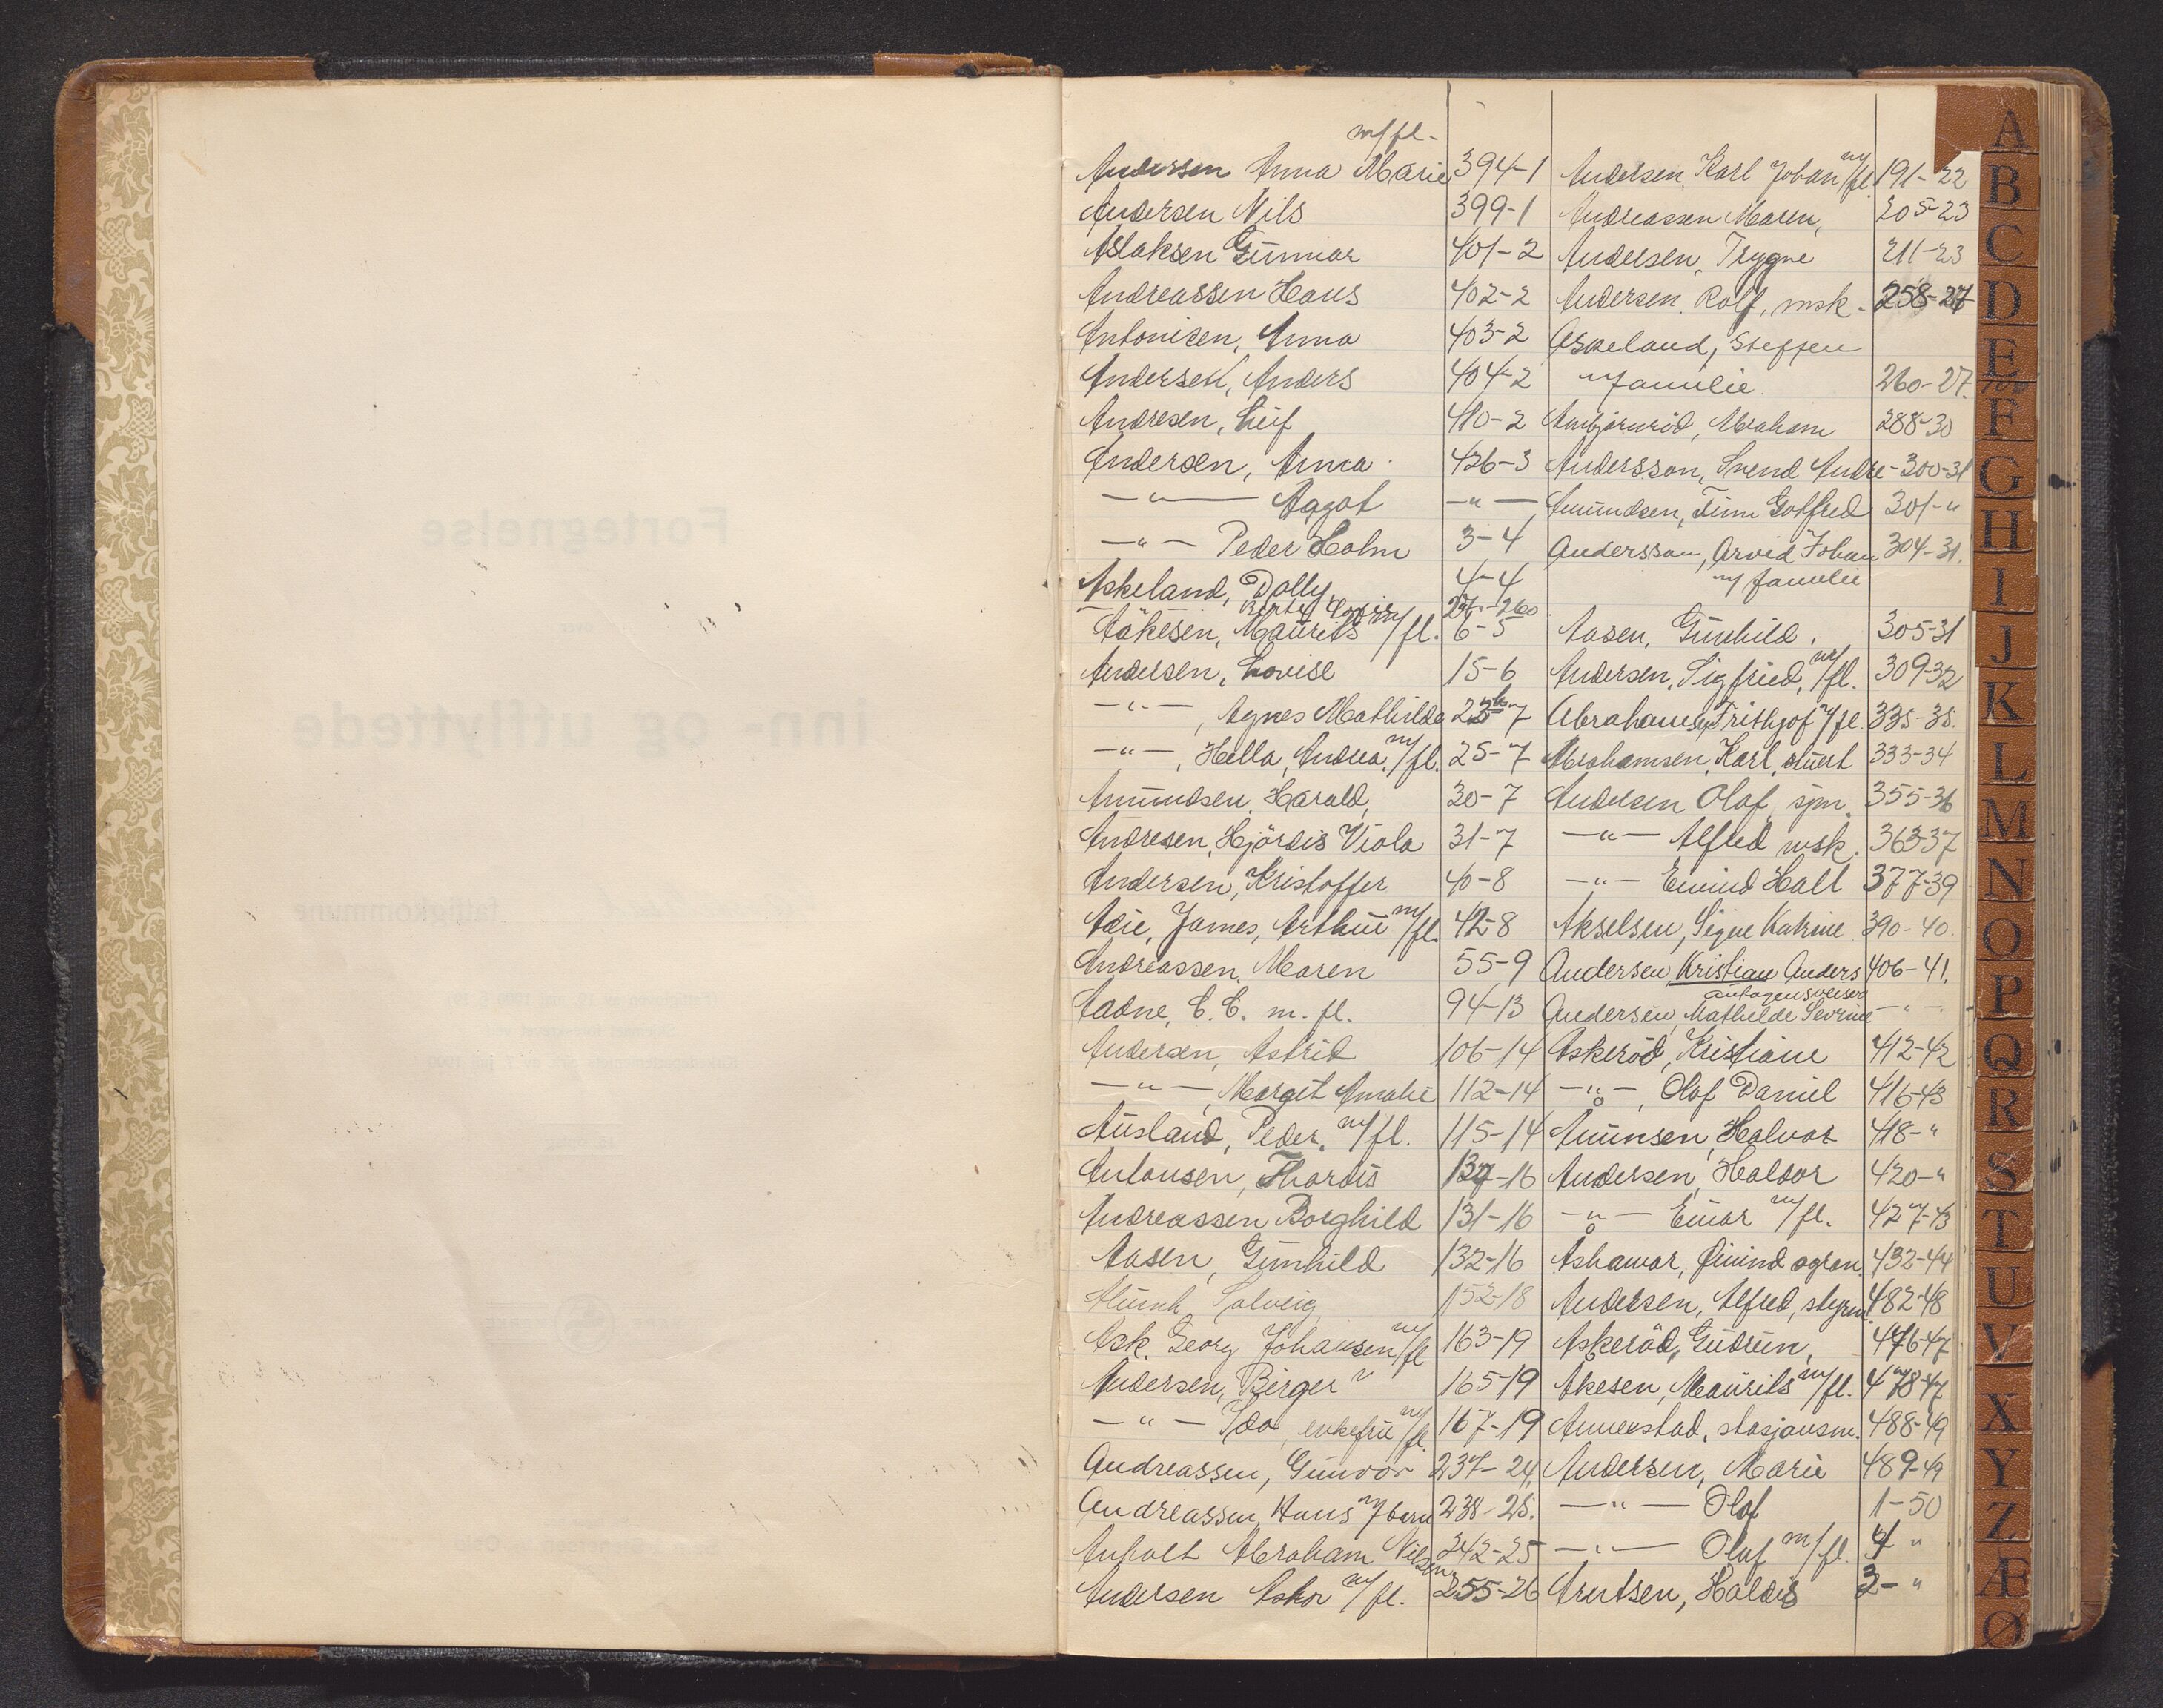 m/fl.
Andersen Anna Marie 394-1
Andersen Nils 399-1
Aslaksen Gunnar 401-2
Andreassen Hans 402-2
Antonisen, Anna 403-2
Andersen, Anders 404-2
Andresen, Leif 410-2
Andersen, Anna 426-3
—"— Aagot —"—
—"— Peder Holm 3-4
Askeland, Dolly 4-4
Aakesen, Maurits m/fl. 6-5
Andersen, Lovise 15-6
—"—, Agnes Mathilde 7
—"—, Hella, Andrea, m/fl. 25-7
Amundsen, Harald, 30-7
Andresen, Hjördis Viola 31-7
Andersen, Kristoffer 40-8
Adie, James, Arthur m/fl. 42-8
Andreassen, Maren 55-9
Aadne, E. E. m. fl. 94-13
Andersen, Astrid 106-14
—"—, Margit Amalie 112-14
Ausland, Peder, m/fl. 115-14
Antonsen, Thordis -16
Andreassen Borghild 131-16
Aasen, Gunhild 132-16
Solveig 152-18
Ask, Georg Johansen m/fl 163-19
Andersen, Birger 165-19
—"— Ida, enkefru m/fl. 167-19
Andreassen, Gunvor 237-24
Andreassen, Hans m/barn 238-25.
Anholt Abraham Nilsen 242-25
Andersen Askor m/fl. 255-26
Andersen, Karl Johan m/fl 191-22
Andreassen Maren, 205-23
Andersen, Trygve 211-23
Andersen, Rolf, msk. 258-27
Askeland, Steffen
m/familie 260-27.
Anbjørnrød, Abraham 288-30
Andersson, Svend Andre- 300-31
Amundsen, Finn Gotfred 301-"
Andersson, Arvid Johan 304-31.
m/familie
Aasen, Gunhild. 305-31
Andersen, Sigfried, m/fl. 309-32
Abrahamsen, Frithjof m/fl. 335-35.
Abrahamsen, Karl, stuert 333-34
Andersen Olaf, sjm. 355-36
—"— Alfred msk. 363-37
—"— Eivind Hall 377-39
Akselsen, Signe Katrine 390-40.
Andersen, Kristian Anders 406-41.
autogensveiser
Andersen, Mathilde Sevrine —"—
Askeröd, Kristiane 412-42
—"—, Olaf Daniel 416-43
Amunsen, Halvor 418-"
Andersen, Haldor 420-"
—"— Einar m/fl. 427-43
Øivind agron. 432-44
Andersen, Alfred, styrm. 482-48
Askeröd, Gudrun, 476-47
Åkesen, Maurits m/fl. 478-47
Annerstad, stasjonsm. 488-49
Andersen, Marie 489-49
—"— Olaf 1-50
—"— Olaf m/fl. "
Arntsen, Haldis "
A
B
C
D
E
F
G
H
I
J
K
L
M
N
O
P
Q
R
S
T
U
V
X
Y
Z
Æ
Ø